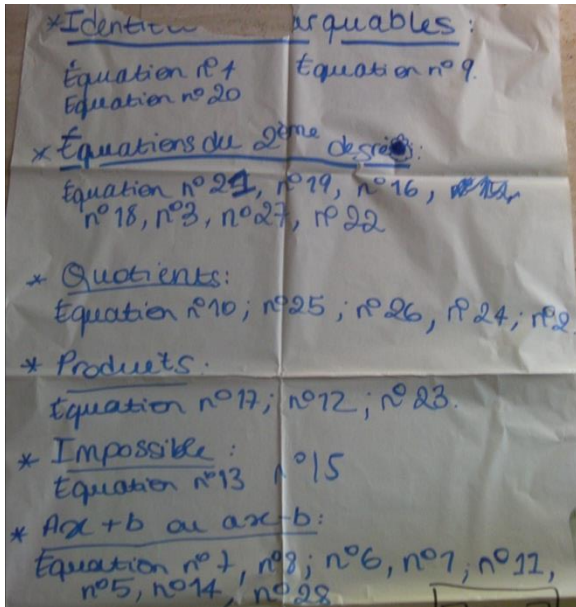 * Identité arquables :
Équation n° 9.
Équation n° 20
* Équations du 2ème degré :
Equation n° 21, n° 19, n° 16,
n° 18, n° 3, n° 27, n° 22
* Quotients :
Equation n° 10 ; n° 25 ; n° 26, n° 24 ; n° 2
* Produits :
Equation n° 17 ; n° 12 ; n° 23.
* Impossible :
Equation n° 13 n° 15
* Ax + b ou ax - b :
Equation n° 7, n° 8 ; n° 6, n° 1 ; n° 11,
n° 5, n° 14, n° 28